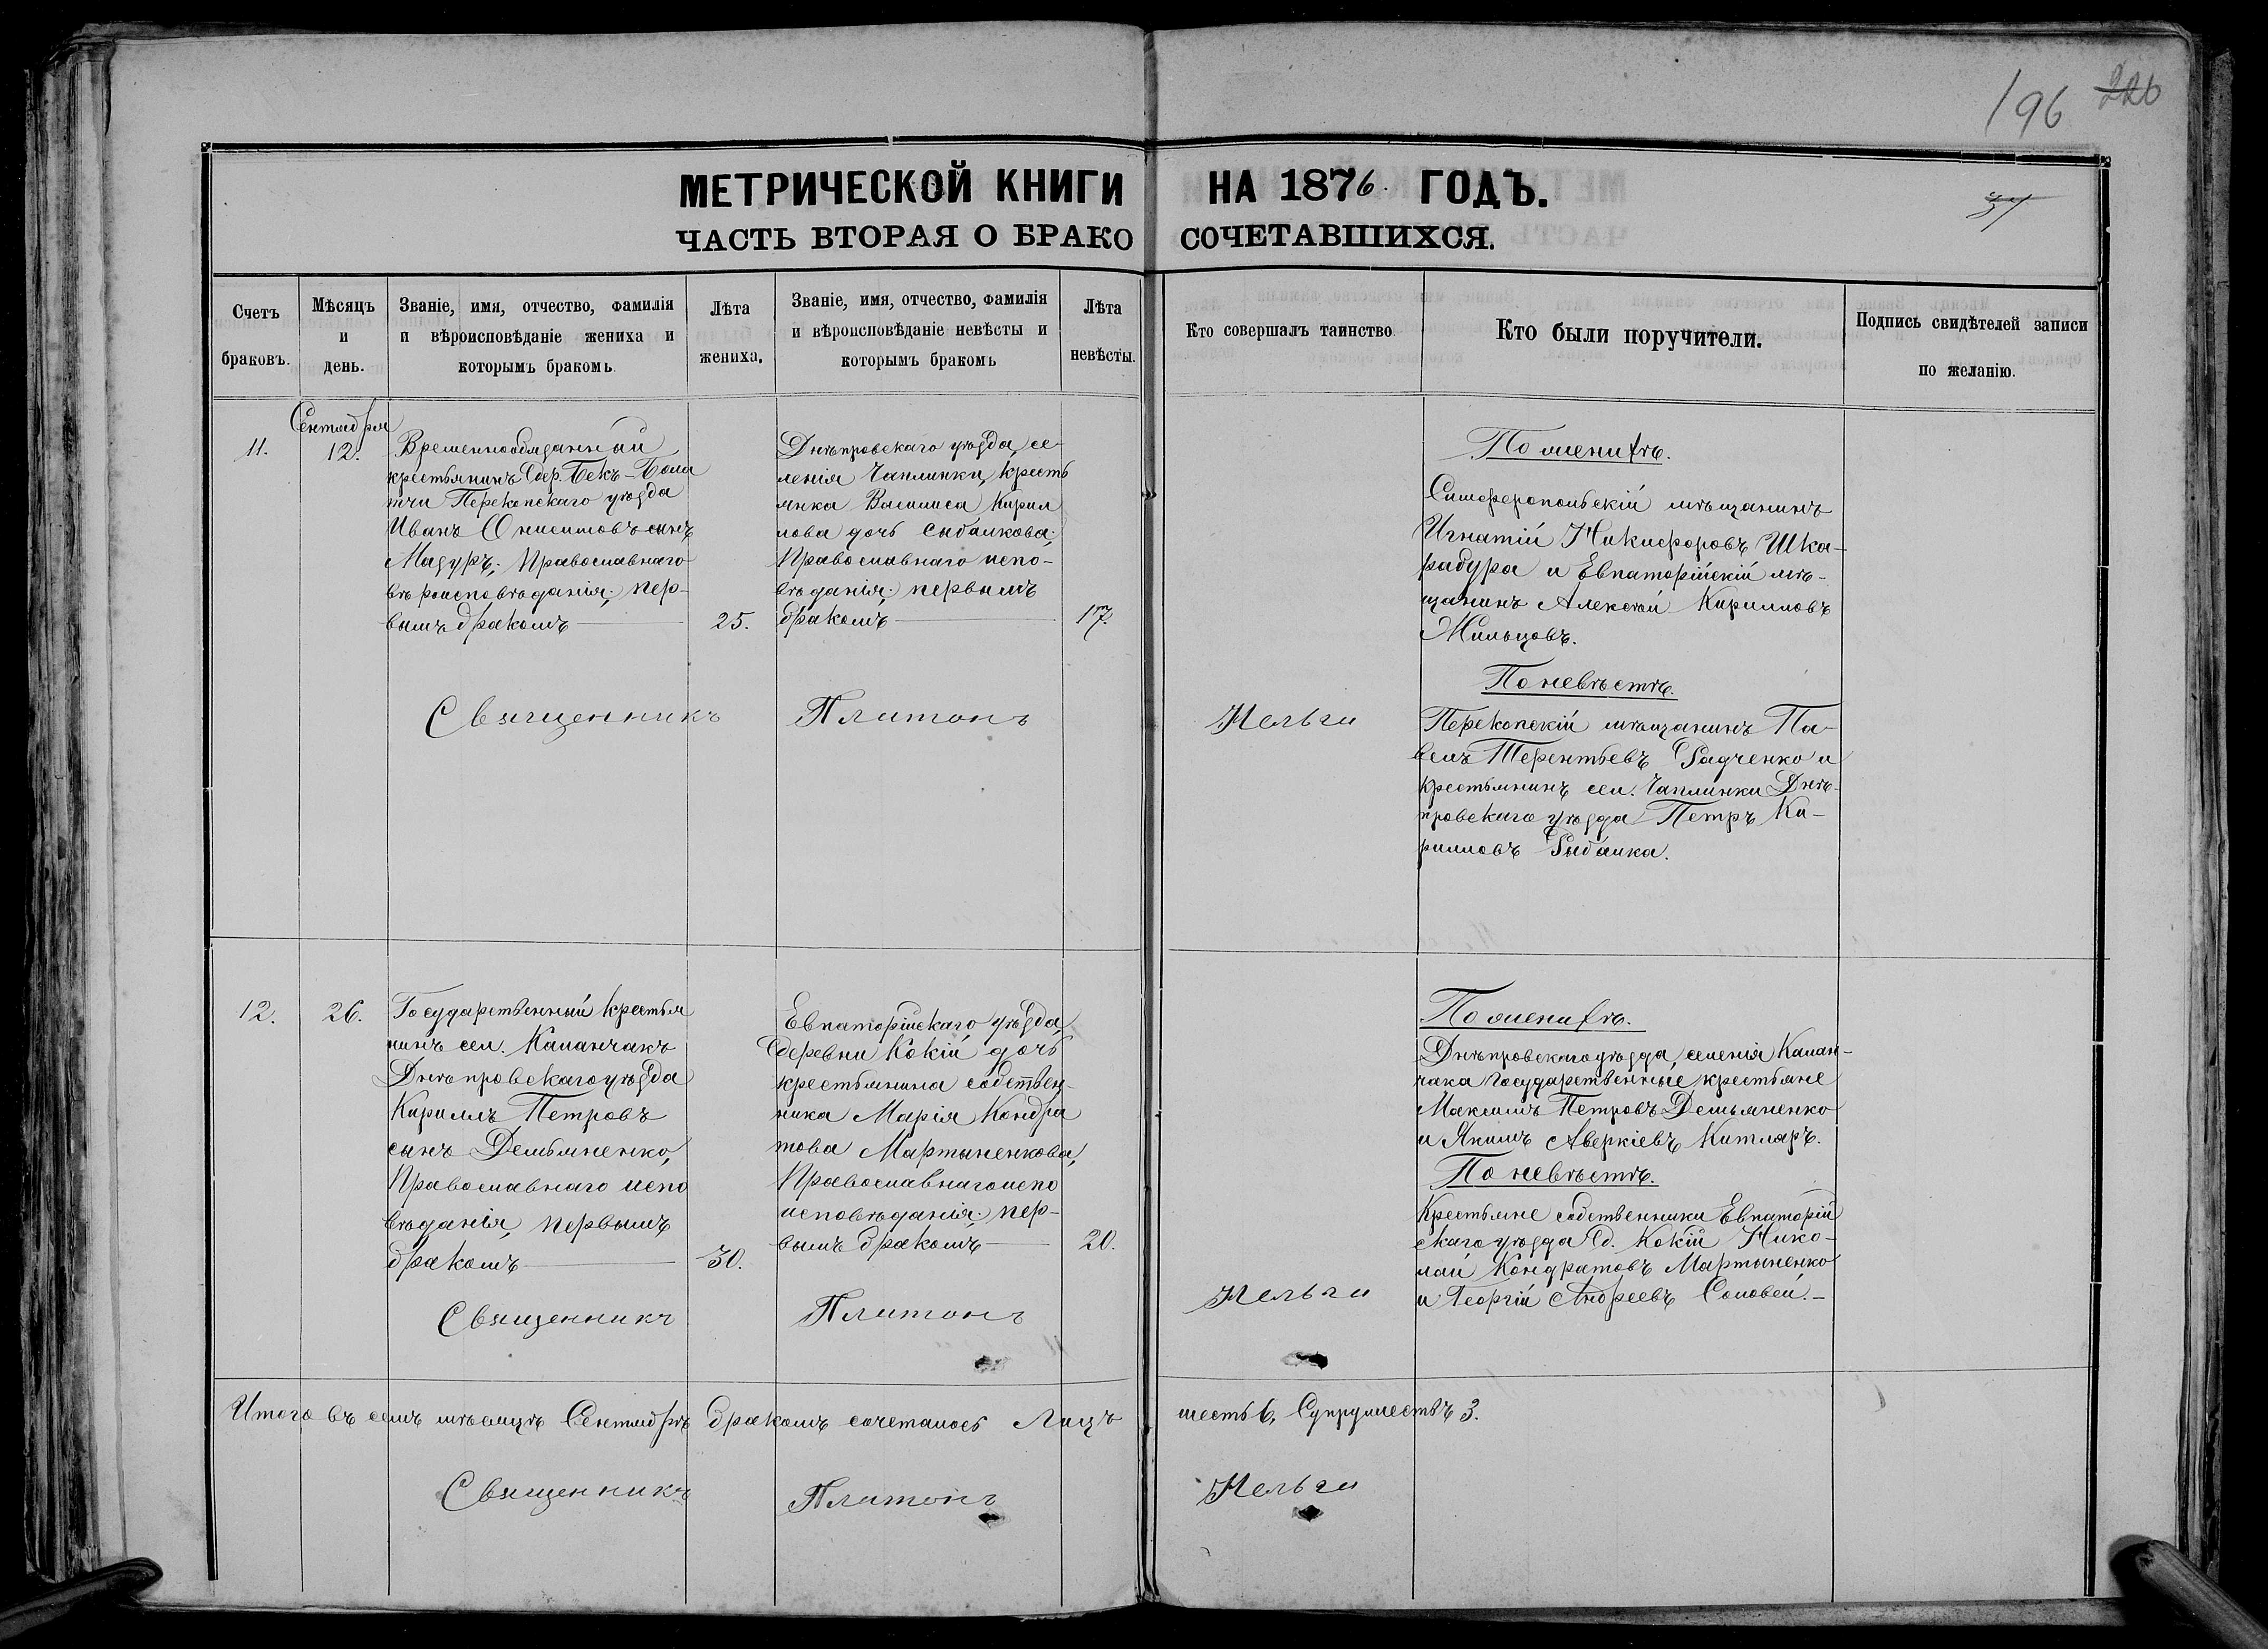 196 226
МЕТРИЧЕСКОЙ КНИГИ НА 1876. ГОДЪ.
37
ЧАСТЬ ВТОРАЯ О БРАКОСОЧЕТАВШИХСЯ.
Счетъ
браковъ.
Мѣсяцъ
и
день.
Званіе, имя, отчество, фамилія
и вѣроисповѣданіе жениха и
которымъ бракомъ
Лѣта
жениха.
Званіе, имя, отчество, фамилія
и вѣроисповѣданіе невѣсты и
которымъ бракомъ
Лѣта
невѣсты.
Кто совершалъ таинство
Кто были поручители.
Подпись свидѣтелей записи
по желанію.
11.
Сентября
12.
Временнообязанный
крестьянинъ дер. Бекъ-Бола
тчи Перекопскаго уѣзда
Иванъ Онисимовъ сынъ
Мазуръ; Православнаго
вѣроисповѣданія; пер-
вымъ бракомъ
25.
Днѣпровскаго уѣзда, се-
ленія Чаплинки, кресть
янка Васса Кирил
лова дочь Рыбалкова;
Православнаго испо-
вѣданія; первымъ
бракомъ
17.
Священникъ Платонъ Нельги
По женихѣ.
Симферопольскій мѣщанинъ
Игнатій Никифоровъ Шка-
радура и Евпаторійскій мѣ-
щанинъ Алексѣй Кирилловъ
Жильцовъ.
По невѣстѣ.
Перекопскій мѣщанинъ Па-
велъ Терентьевъ Радченко и
крестьянинъ сел. Чаплинки Днѣ-
провскаго уѣзда Петръ Ки-
рилловъ Рыбалка.
12.
26.
Государственный крестья
нинъ сел. Каланчакъ
Днѣпровскаго уѣзда
Кириллъ Петровъ
сынъ Демьяненко,
Православнаго испо
вѣданія, первымъ
бракомъ
30.
Евпаторійскаго уѣзда,
деревни Кокій дочь
крестьянина собствен-
ника Марія Кондра
това Мартыненкова,
Православнаго испо
исповѣданія; пер-
вымъ бракомъ
20.
Священникъ Платонъ Нельги
По женихѣ.
Днѣпровскаго уѣзда, селенія Калан-
чака государственные крестьяне
Максимъ Петровъ Демьяненко
и Якимъ Аверкіевъ Китларъ.
По невѣстѣ.
Крестьяне собственники Евпаторій
скаго уѣзда д. Кокій Нико-
лай Кондратовъ Мартыненко
и Георгій Андреевъ Соловей.-
Итого въ семъ мѣсяцѣ Сентябрѣ бракомъ сочеталось Лицъ шесть 6, Супружествъ 3.
Священникъ Платонъ Нельги